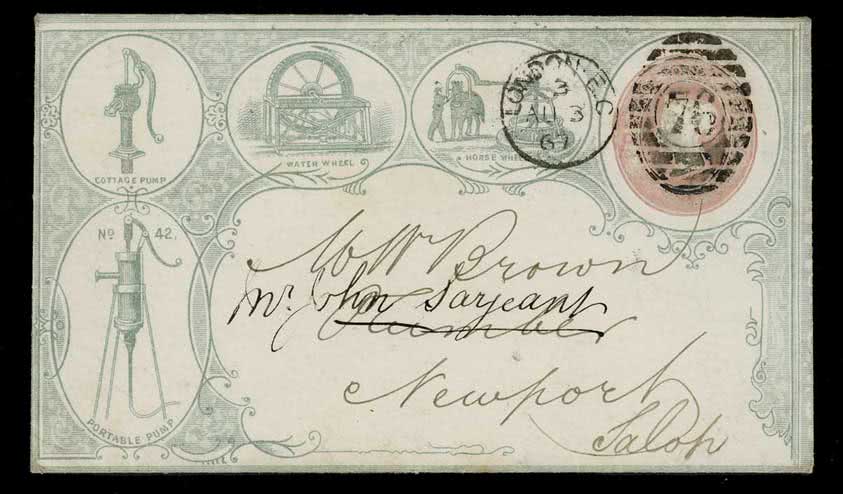 COTTAGE PUMP
WATER WHEEL
HORSE WHEEL
LONDON·E.C
3
AU 3
67
76
No 42.
PORTABLE PUMP
W W Brown
Mr. John Sarjeant
Plumber
Newport
Salop